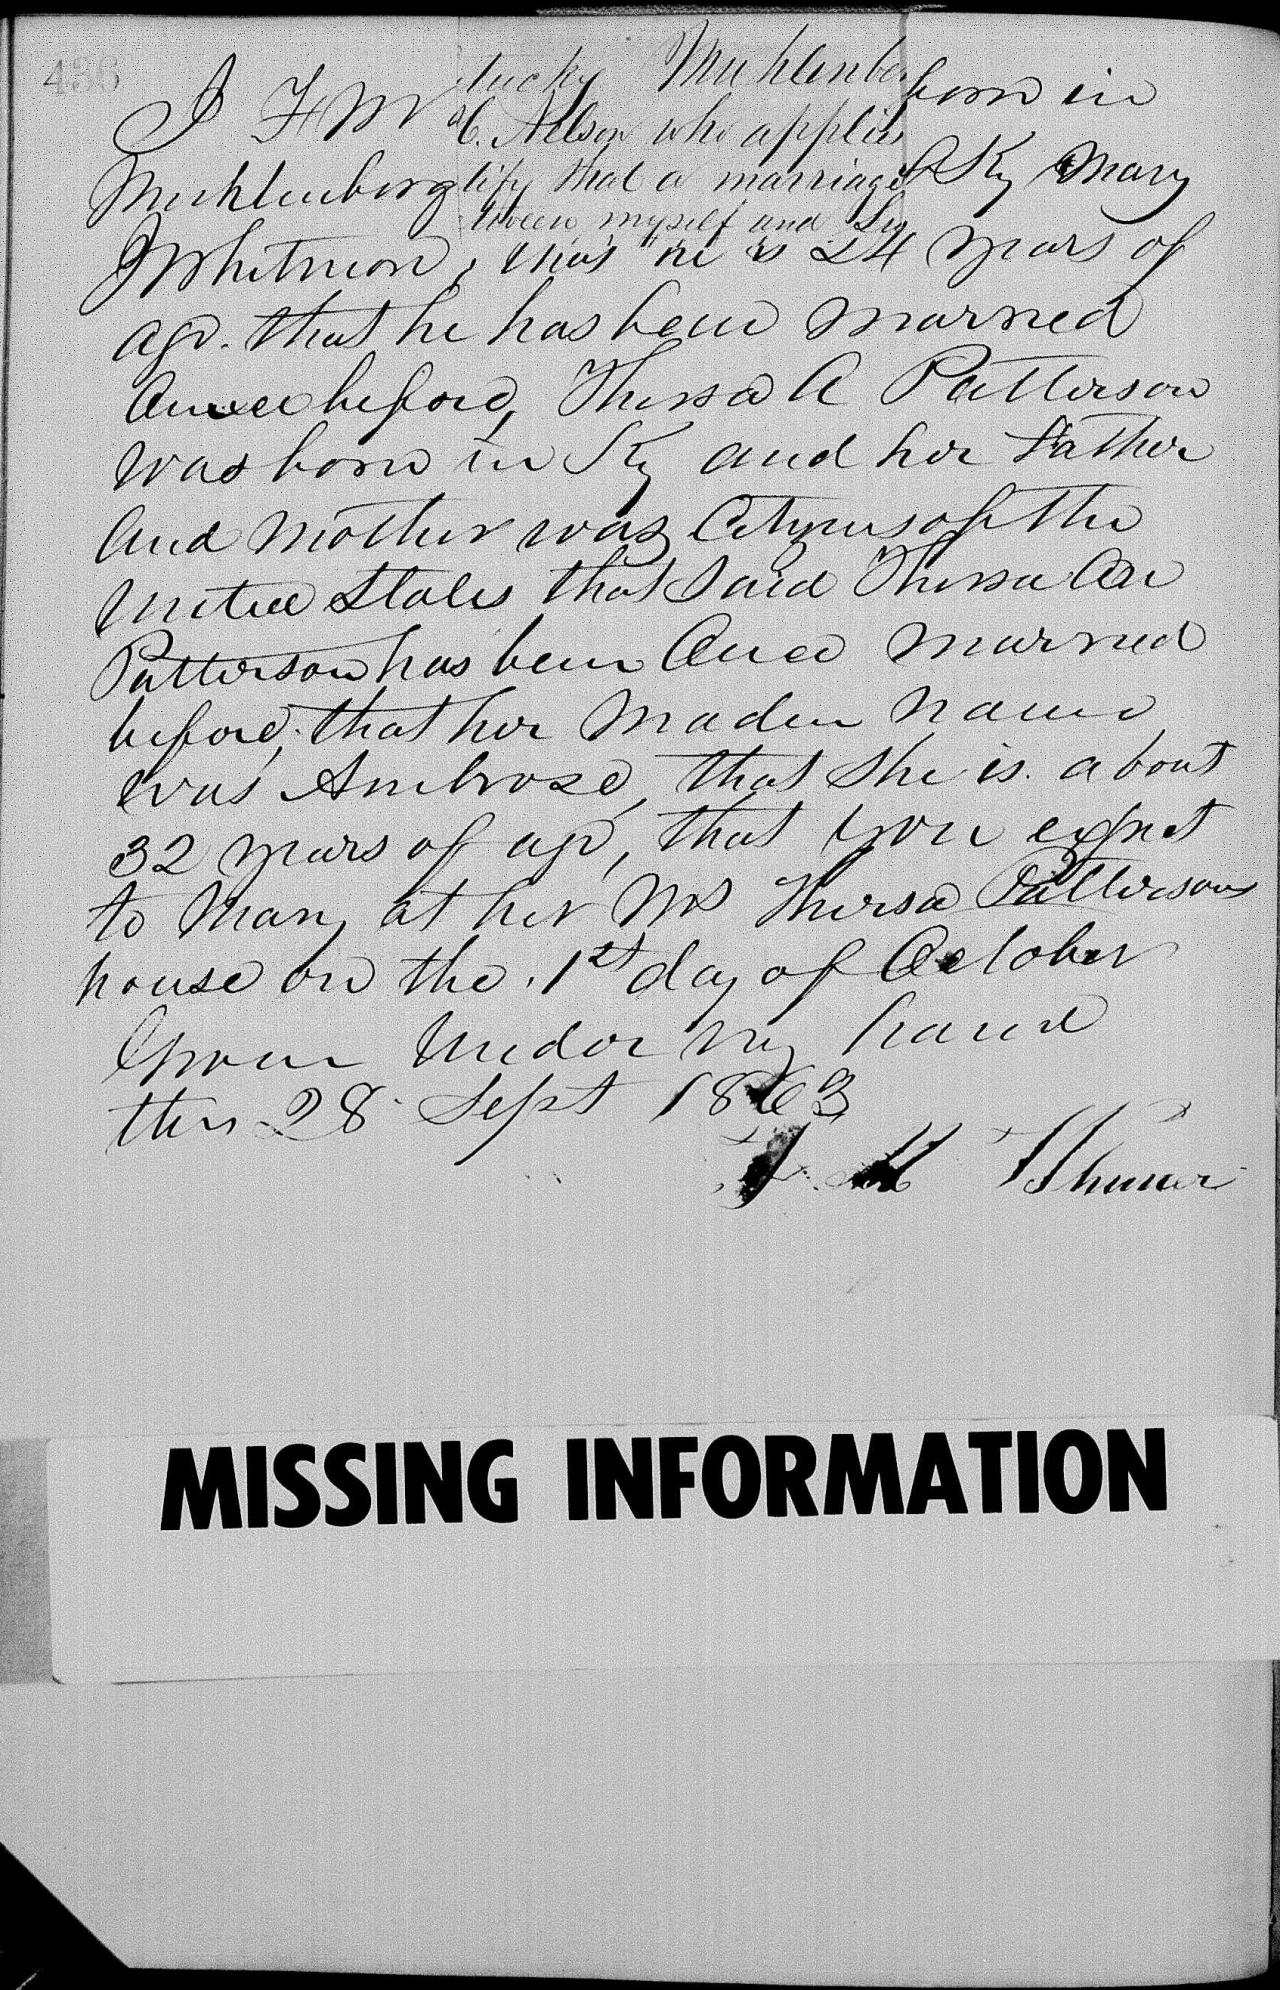 436
tucky Muhlenber
I F M born in
C. Nelson who applies
Muhlenberg Ky Mary
tify that a marriage
tween myself and
J Whitmon, that he is 24 years of
age. that he has been married
before, Thersa A Patterson
was born in Ky and her Father
and Mother was Citizens of the
United States that said Thersa Ann
Patterson has been Once married
before, that her Maden name
was Ambrose, that she is about
32 years of age, that you expect
to Mary at her Mrs Thersa Pattersons
house on the 1st day of October
Given Under my hand
this 28 Sept 1863
MISSING INFORMATION